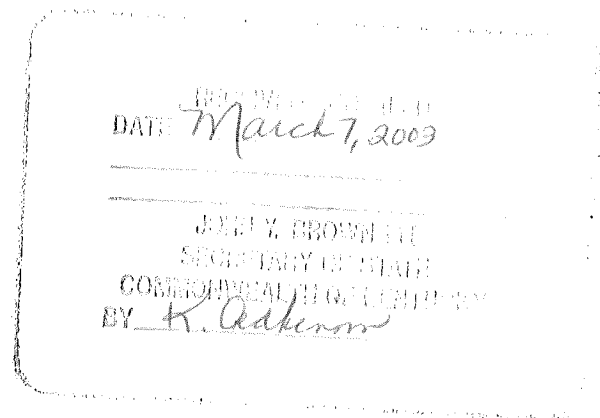 DATE March 7, 2003
JOHN Y. BROWN III
SECRETARY OF STATE
COMMONWEALTH OF KENTUCKY
BY K. Adkisson